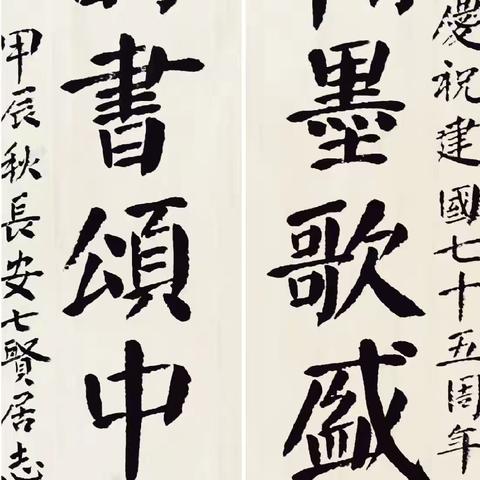 慶祝建國七十五周年
墨歌盛
書頌中
甲辰秋長安七賢居志